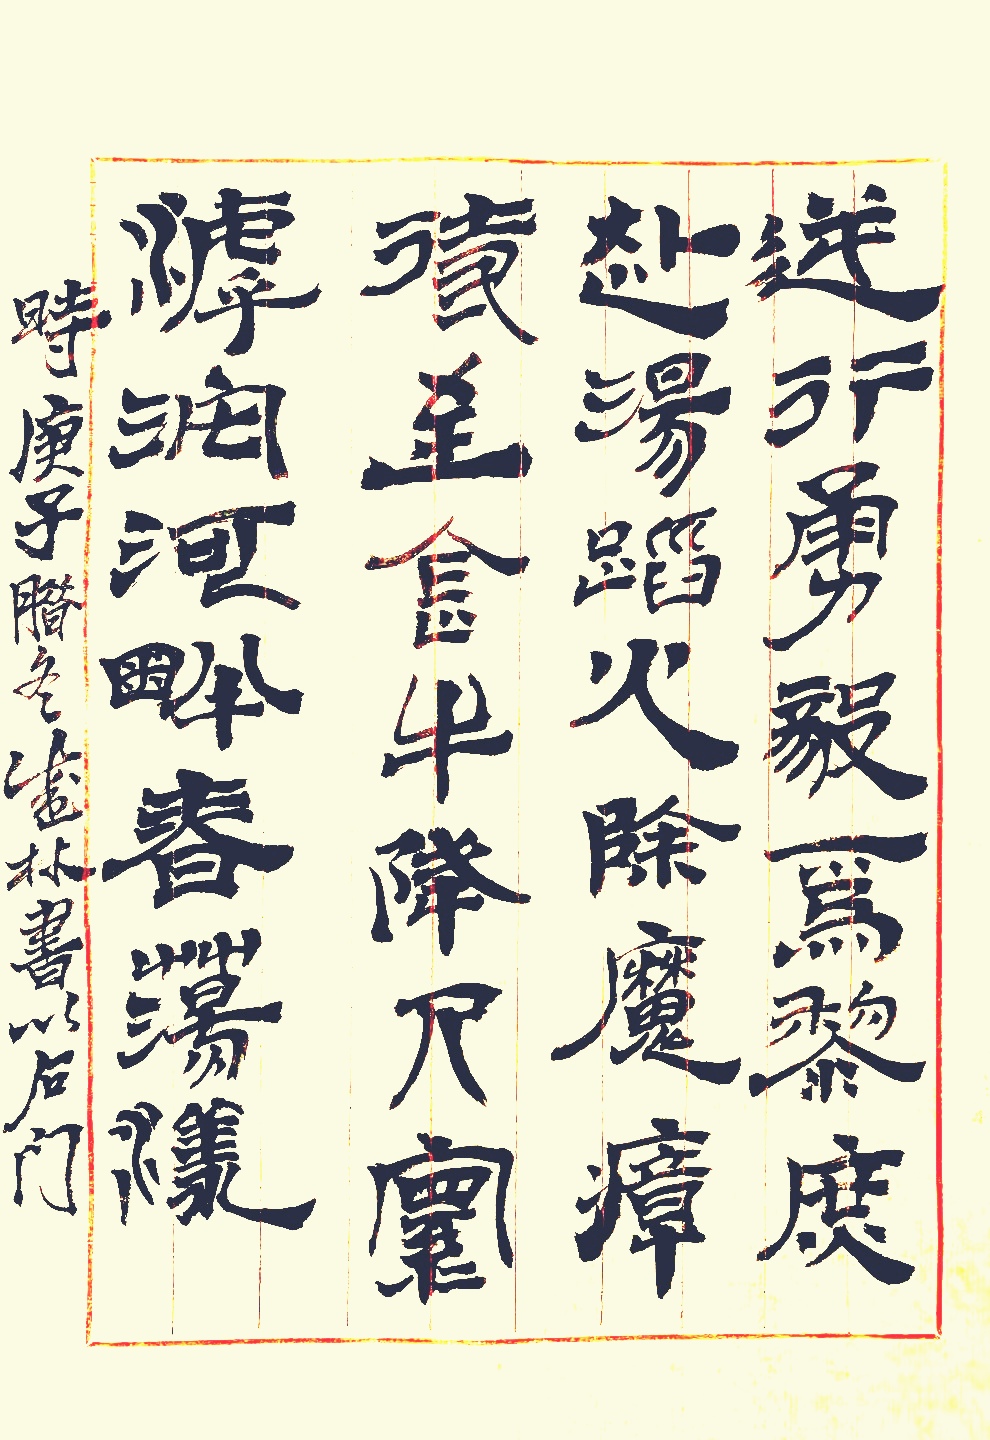 逆行勇毅為黎庶
赴湯蹈火除魔瘴
至金牛降尺寰
滹沱河畔春蕩漾
時庚子腊冬林書以石门